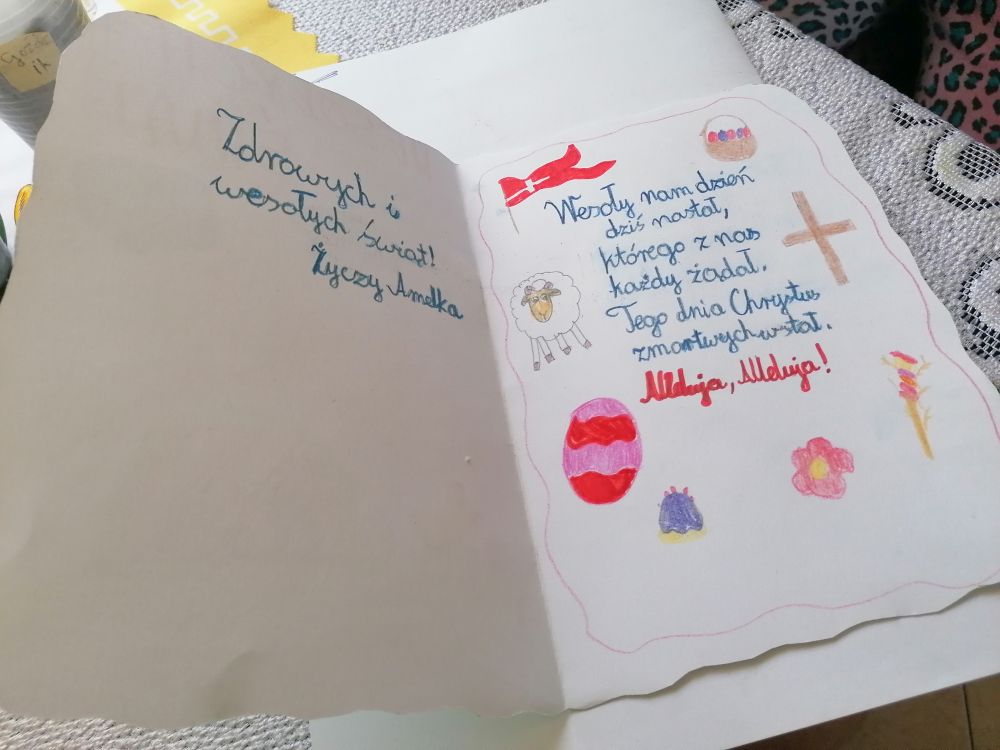 Zdrowych i
wesołych świąt!
Życzy Amelka
Wesoły nam dzień
dziś nastał,
którego z nas
każdy żądał.
Tego dnia Chrystus
zmartwychwstał.
Alleluja, Alleluja!